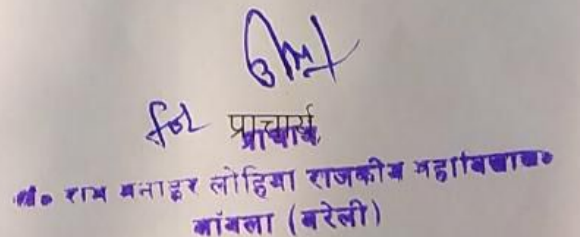 for प्राचार्य
डा० राम मनोहर लोहिया राजकीय महाविद्यालय
आंवला (बरेली)